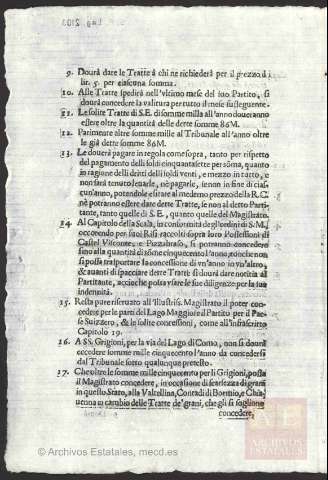 9. Dourà dare le Tratte à chi ne richiederà per il prezzo di
lir. 5. per ciascuna somma.
10. Alle Tratte spedirà nell'vltimo mese del suo Partito, si
dourà concedere la valitura per tutto il mese susseguente.
11. Le solite Tratte di S.E. di somme milla all'anno doueranno
essere oltre la quantità delle dette somme 86M.
12. Parimente altre somme mille al Tribunale all'anno oltre
le già dette somme 86M.
13. Le douerà pagare in regola come sopra, tanto per rispetto
del pagamento delli soldi cinquantasette per sõma, quanto
in ragione delli dritti delli soldi venti, e mezzo in tutto, e
non sarà tenuto leuarle, nè pagarle, se non in fine di cias-
cun'anno, potendole esitare al medemo prezzo della R.C.
nè potranno essere date dette Tratte, se non al detto Parti-
tante, tanto quelle di S.E, quanto quelle del Magistrato.
14. Al Capitolo della Scala, in conformità degl'ordini di S.M.,
occorendo per suoi Risi raccolti sopra loro Possessioni di
Castel Visconte, e Pizzabraso, si potranno concedere
sino alla quantità di sõme cinquecento l'anno, poiche non
si possa trasportare la concessione di vn'anno in vn'altro,
& auanti di spacciare dette Tratte si dourà dare notitia al
Partitante, accioche possa vsare le sue diligenze per la sua
indennità.
15. Resta pure riseruato all'Illustriss. Magistrato il poter con-
cedere per le parti del Lago Maggiore il Partito per il Pae-
se Suizzero, & le solite concessioni, come all'infrascritto
Capitolo 19.
16. A SS. Grigioni, per la via del Lago di Como, non si dourà
eccedere somme mille cinquecento l'anno da concedersi
dal Tribunale sotto qualunque pretesto.
17. Che oltre le somme mille cinquecento per li Grigioni, possa
il Magistrato concedere, in occasione di scarsezza di grani
in questo Stato, alla Valtellina, Contadi di Bormio, e Chia-
uenna in cambio delle Tratte de' grani, che gli si sogliono
concedere,
ARCHIVOS
ESTATALES
© Archivos Estatales, mecd.es